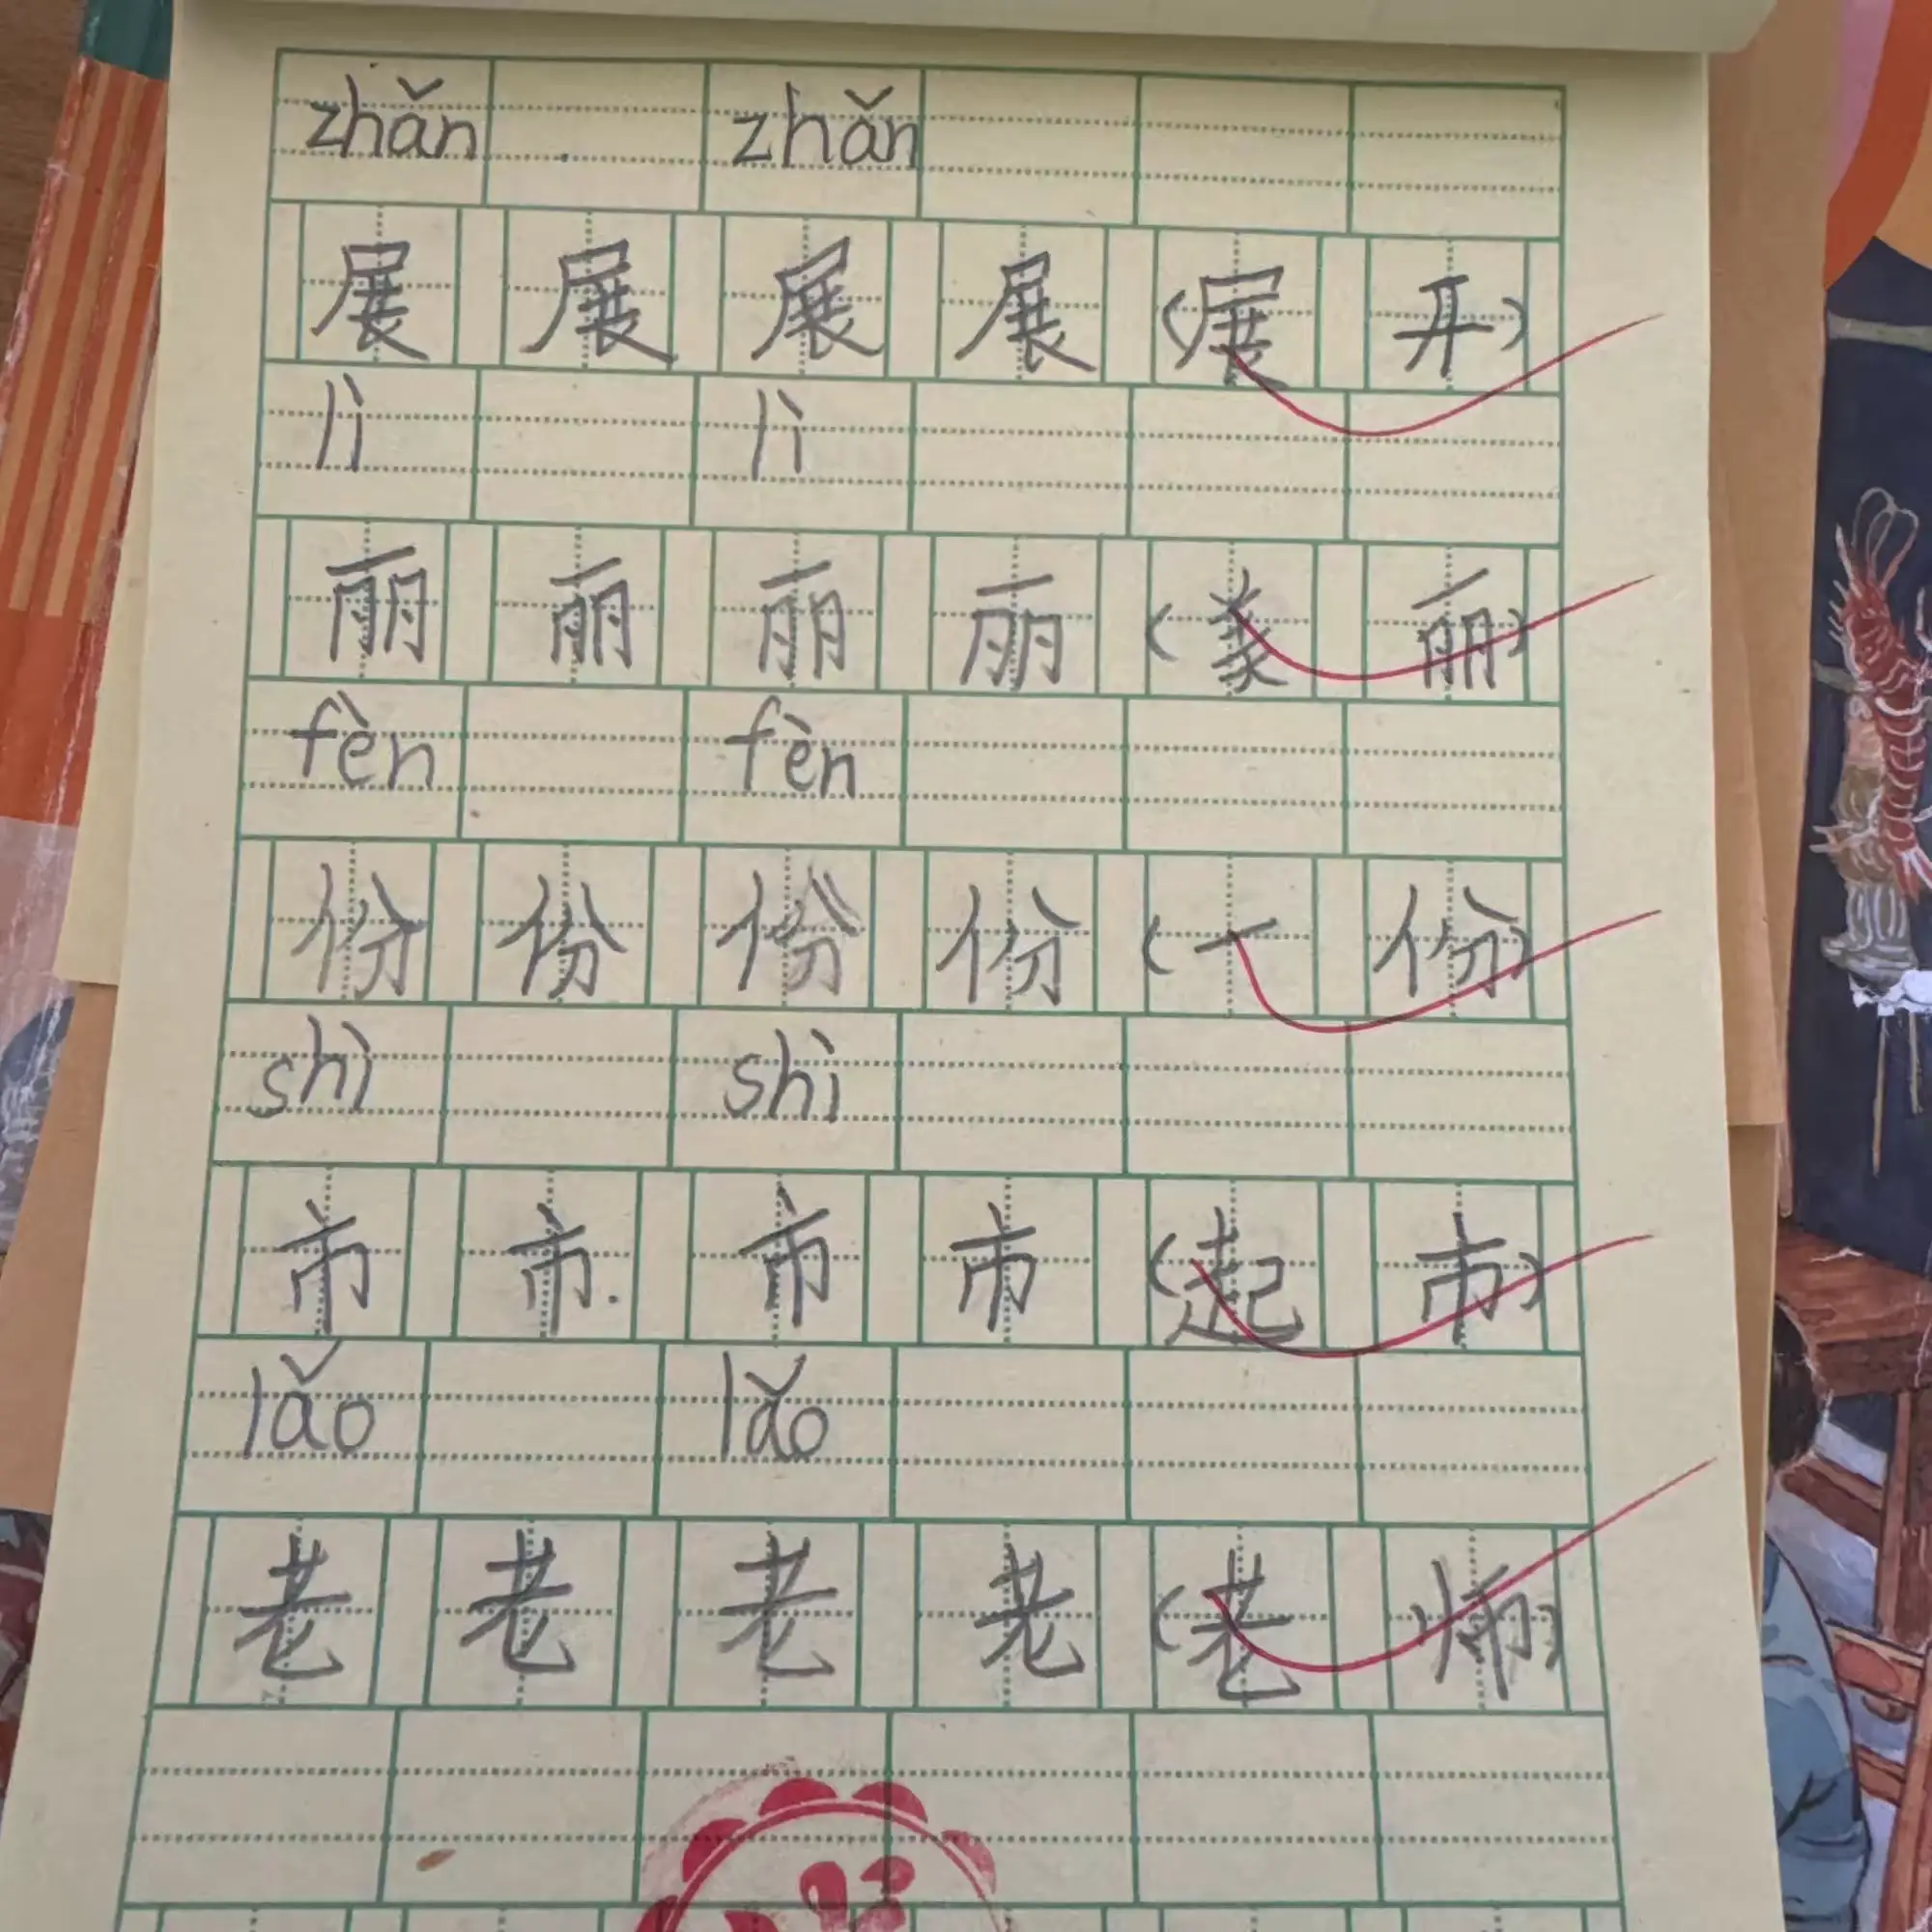 zhǎn zhǎn
展 展 展 展 (展 开)
lì lì
丽 丽 丽 丽 (美 丽)
fèn fèn
份 份 份 份 (一 份)
shì shì
市 市 市 市 (起 市)
lǎo lǎo
老 老 老 老 (老 师)